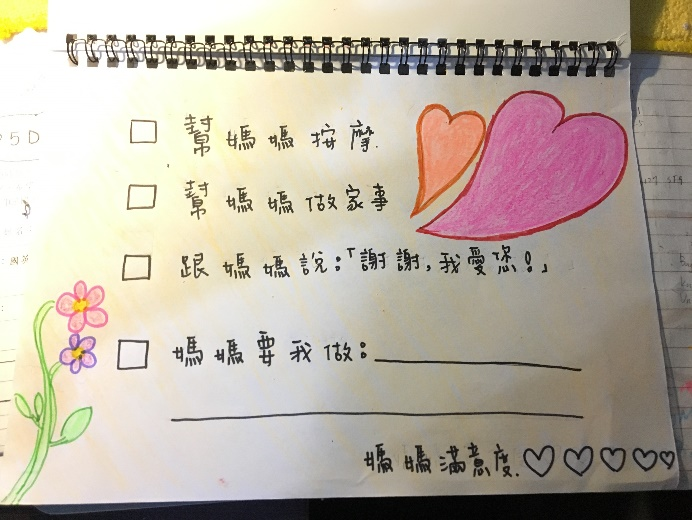 幫媽媽按摩.
幫媽媽做家事
跟媽媽說:「謝謝,我愛您!」
媽媽要我做:
媽媽滿意度.